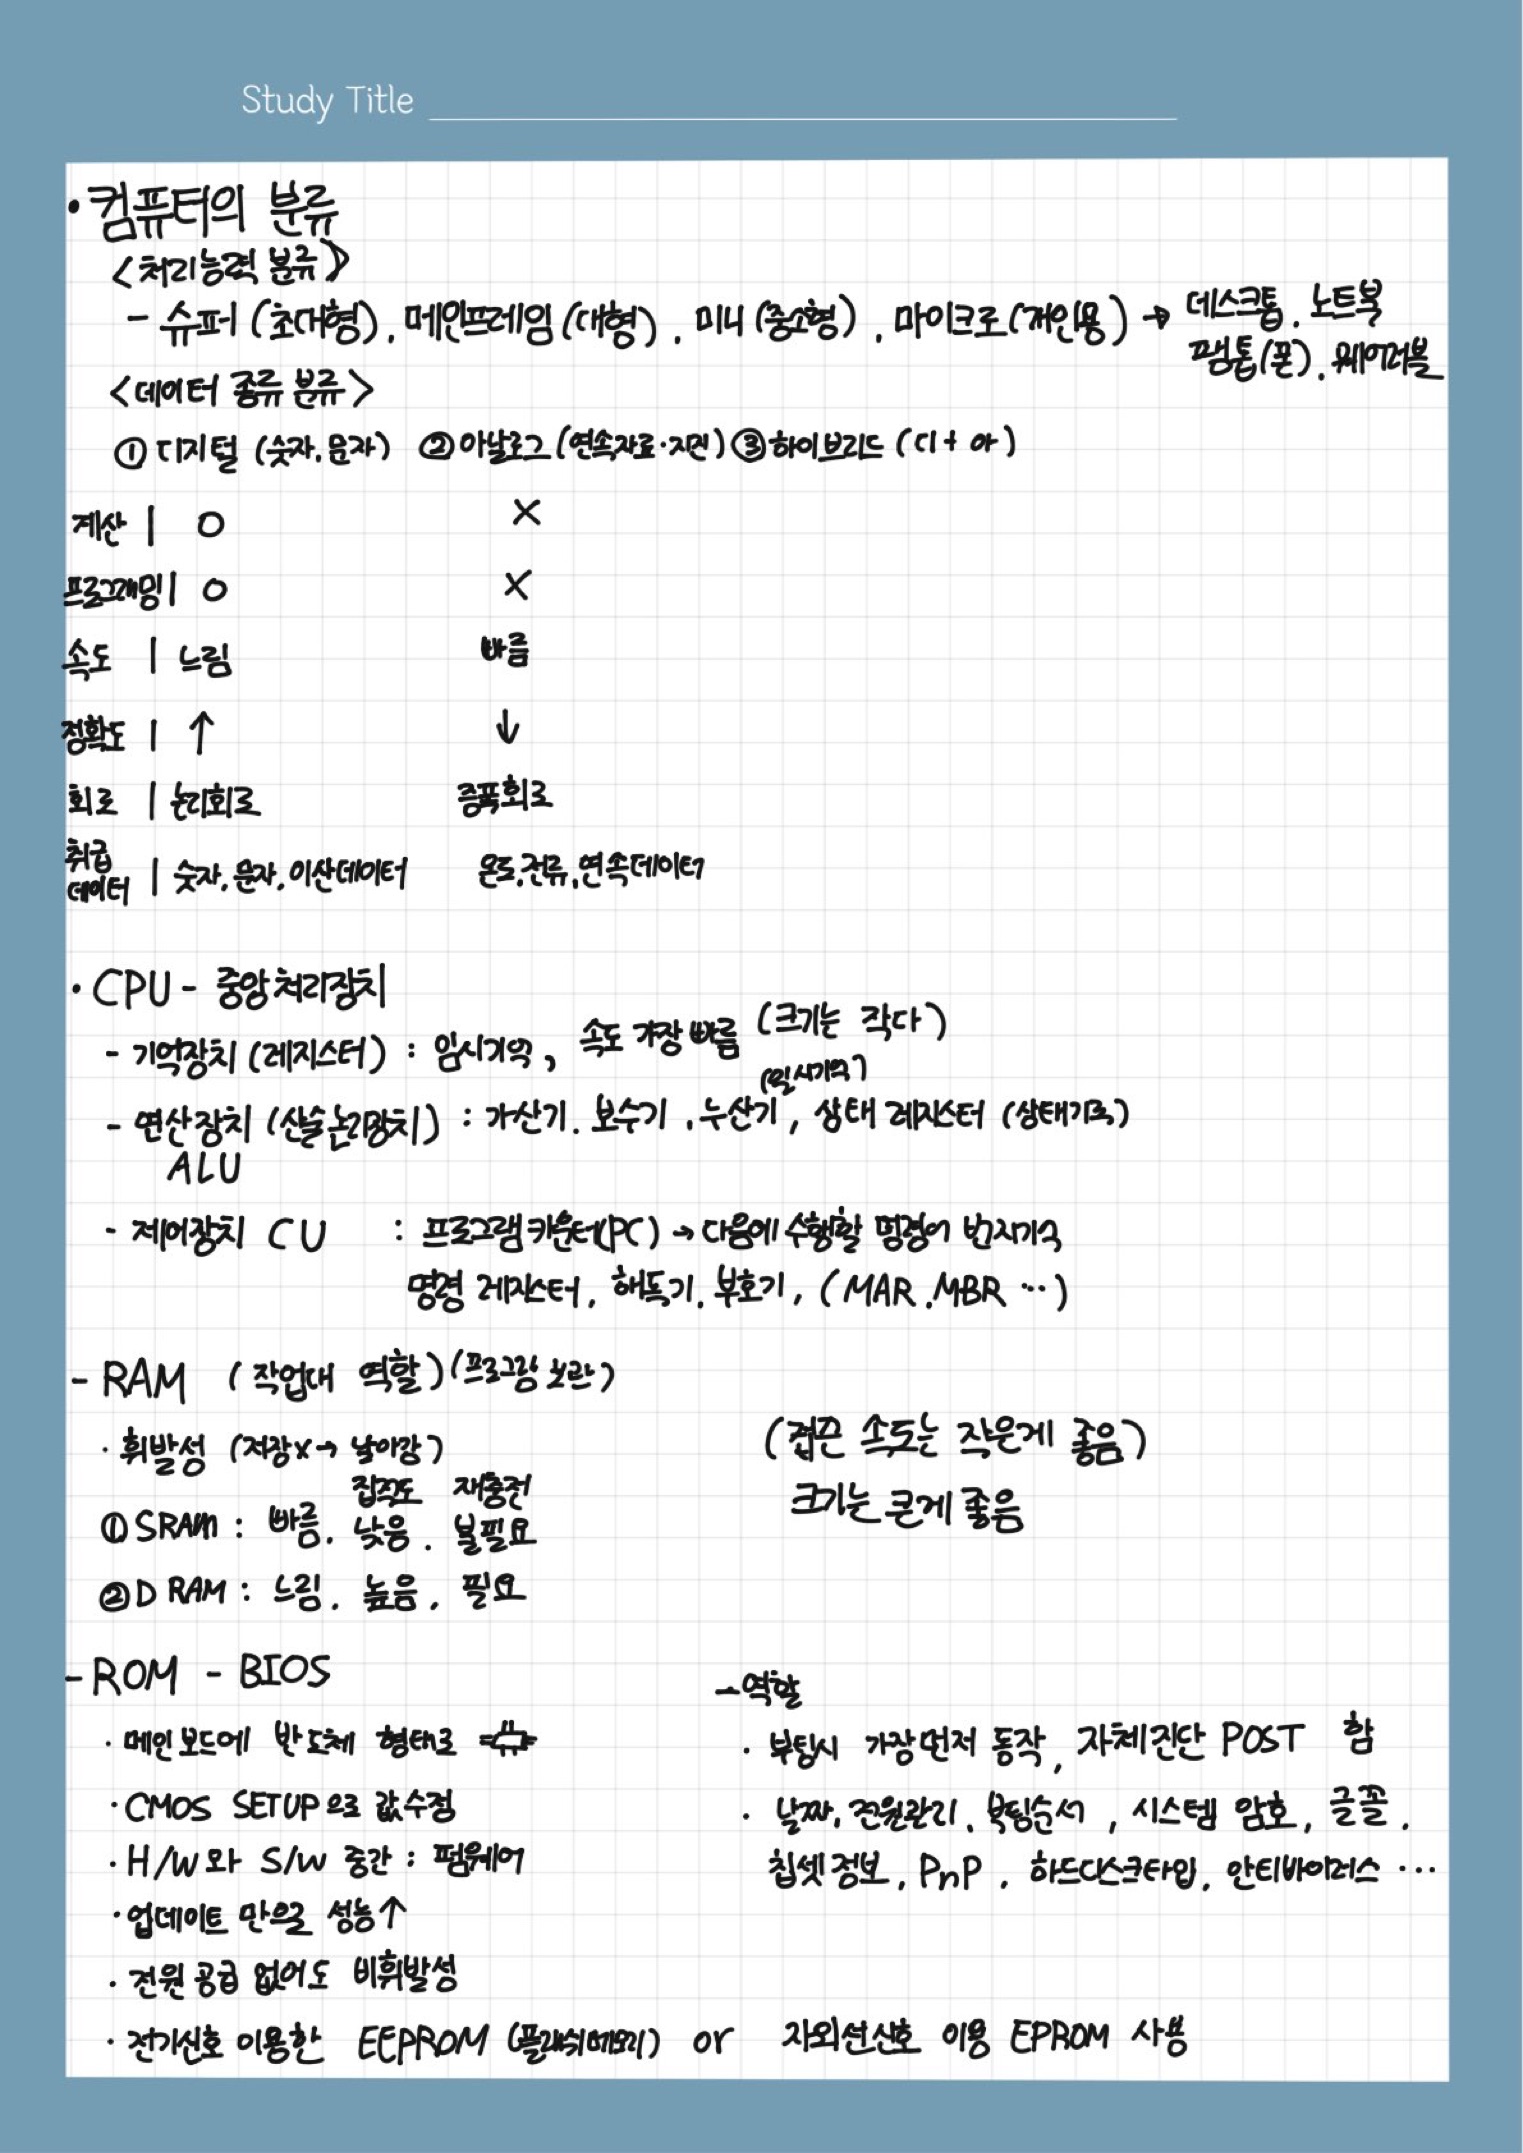 Study Title
· 컴퓨터의 분류
<처리능력 분류>
- 슈퍼 (초대형), 메인프레임 (대형), 미니 (중소형), 마이크로 (개인용) → 데스크톱, 노트북
팸톱(폰), 웨어러블
<데이터 종류 분류>
① 디지털 (숫자, 문자) ② 아날로그 (연속자료·지진) ③ 하이브리드 (디 + 아)
계산 | O X
프로그래밍 | O X
속도 | 느림 빠름
정확도 | ↑ ↓
회로 | 논리회로 증폭회로
취급
데이터 | 숫자, 문자, 이산데이터 온도, 전류, 연속데이터
· CPU - 중앙처리장치
- 기억장치 (레지스터) : 임시기억, 속도 가장 빠름 (크기는 작다)
(일시기억)
- 연산장치 (산술논리장치) : 가산기, 보수기, 누산기, 상태 레지스터 (상태기록)
ALU
- 제어장치 CU : 프로그램 카운터(PC) → 다음에 수행할 명령어 번지기억
명령 레지스터, 해독기, 부호기, (MAR, MBR ···)
- RAM (작업대 역할) (프로그램 보관)
· 휘발성 (저장x → 날아감)
(접근 속도는 작은게 좋음)
집적도 재충전
크기는 큰게 좋음
① SRAM : 빠름, 낮음, 불필요
② D RAM : 느림, 높음, 필요
- ROM - BIOS
· 메인보드에 반도체 형태로
· CMOS SETUP으로 값수정
· H/W와 S/W 중간 : 펌웨어
· 업데이트 만으로 성능↑
· 전원 공급 없어도 비휘발성
· 전기신호 이용한 EEPROM (플래쉬메모리) or 자외선신호 이용 EPROM 사용
- 역할
· 부팅시 가장먼저 동작, 자체진단 POST 함
· 날짜, 전원관리, 부팅순서, 시스템 암호, 글꼴,
칩셋정보, PnP, 하드디스크타입, 안티바이러스 ···